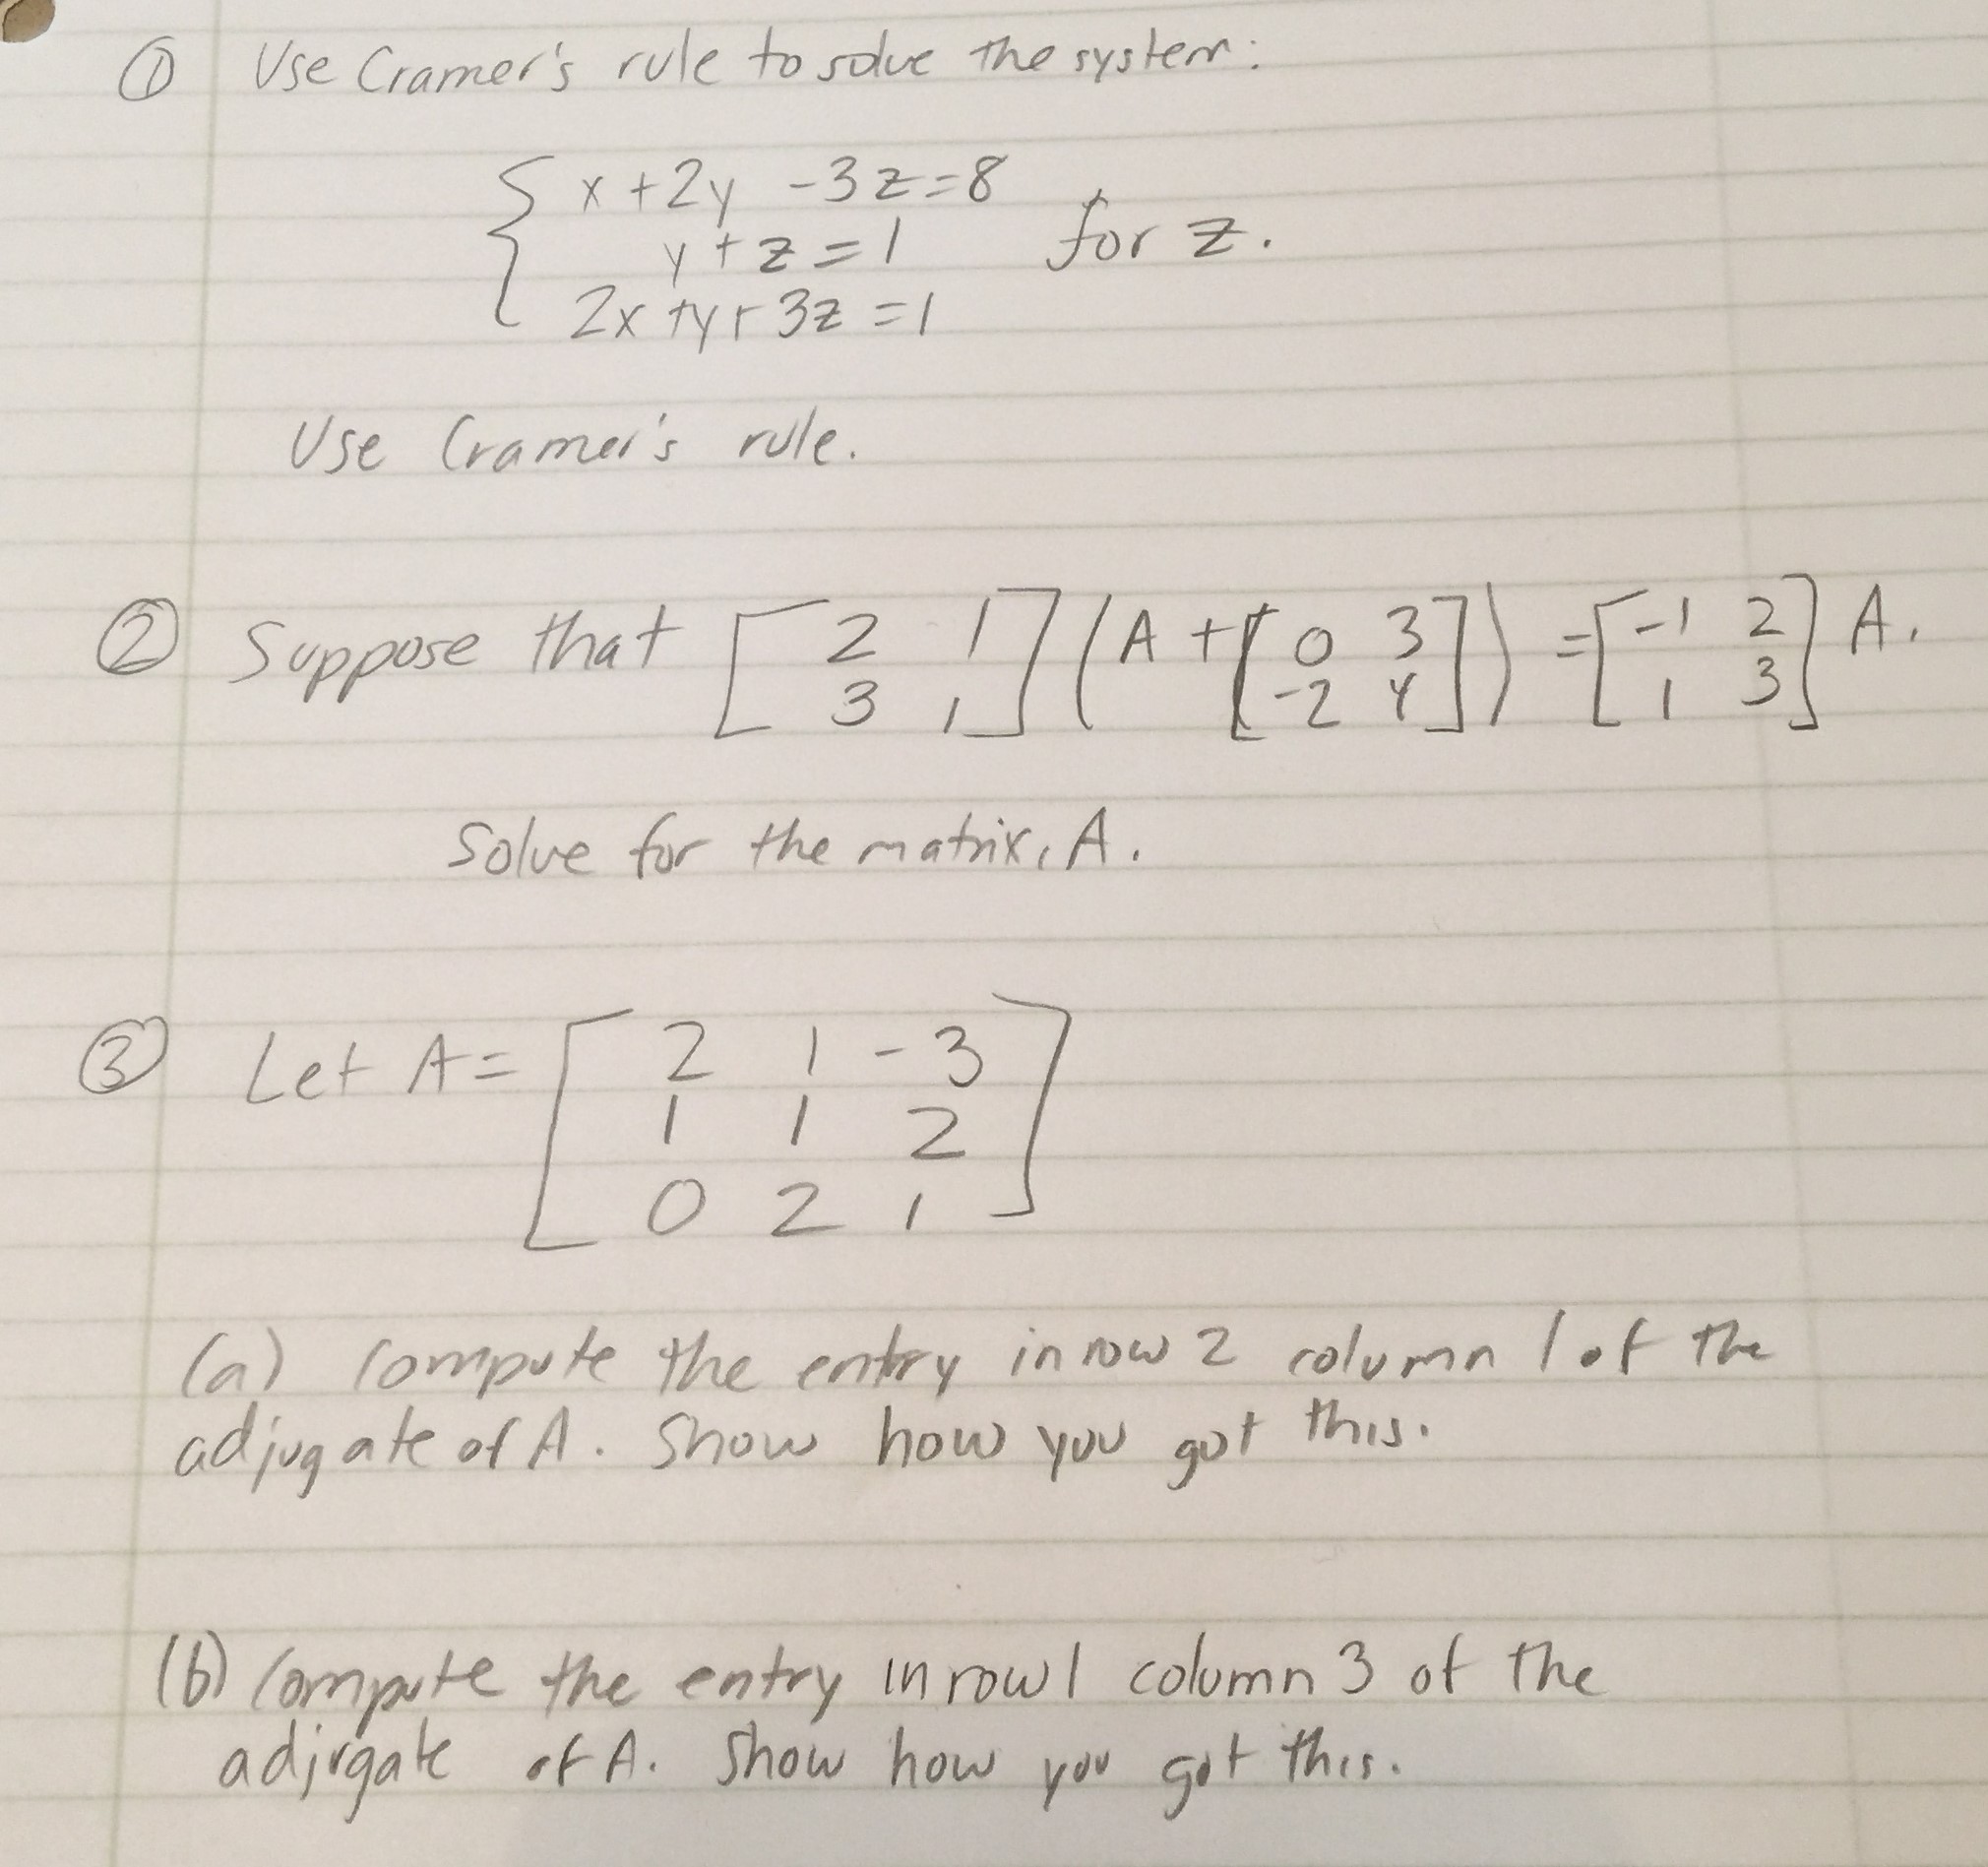 ① Use Cramer's rule to solve the system:
x + 2y - 3z = 8
y + z = 1 for z.
2x + y + 3z = 1
Use Cramer's rule.
② Suppose that [ 2 1 ] ( A + [ 0 3 ] ) = [ -1 2 ] A.
3 1 -2 4 1 3
Solve for the matrix, A.
③ Let A = [ 2 1 -3 ]
1 1 2
0 2 1
(a) Compute the entry in row 2 column 1 of the
adjugate of A. Show how you got this.
(b) Compute the entry in row 1 column 3 of the
adjugate of A. Show how you got this.